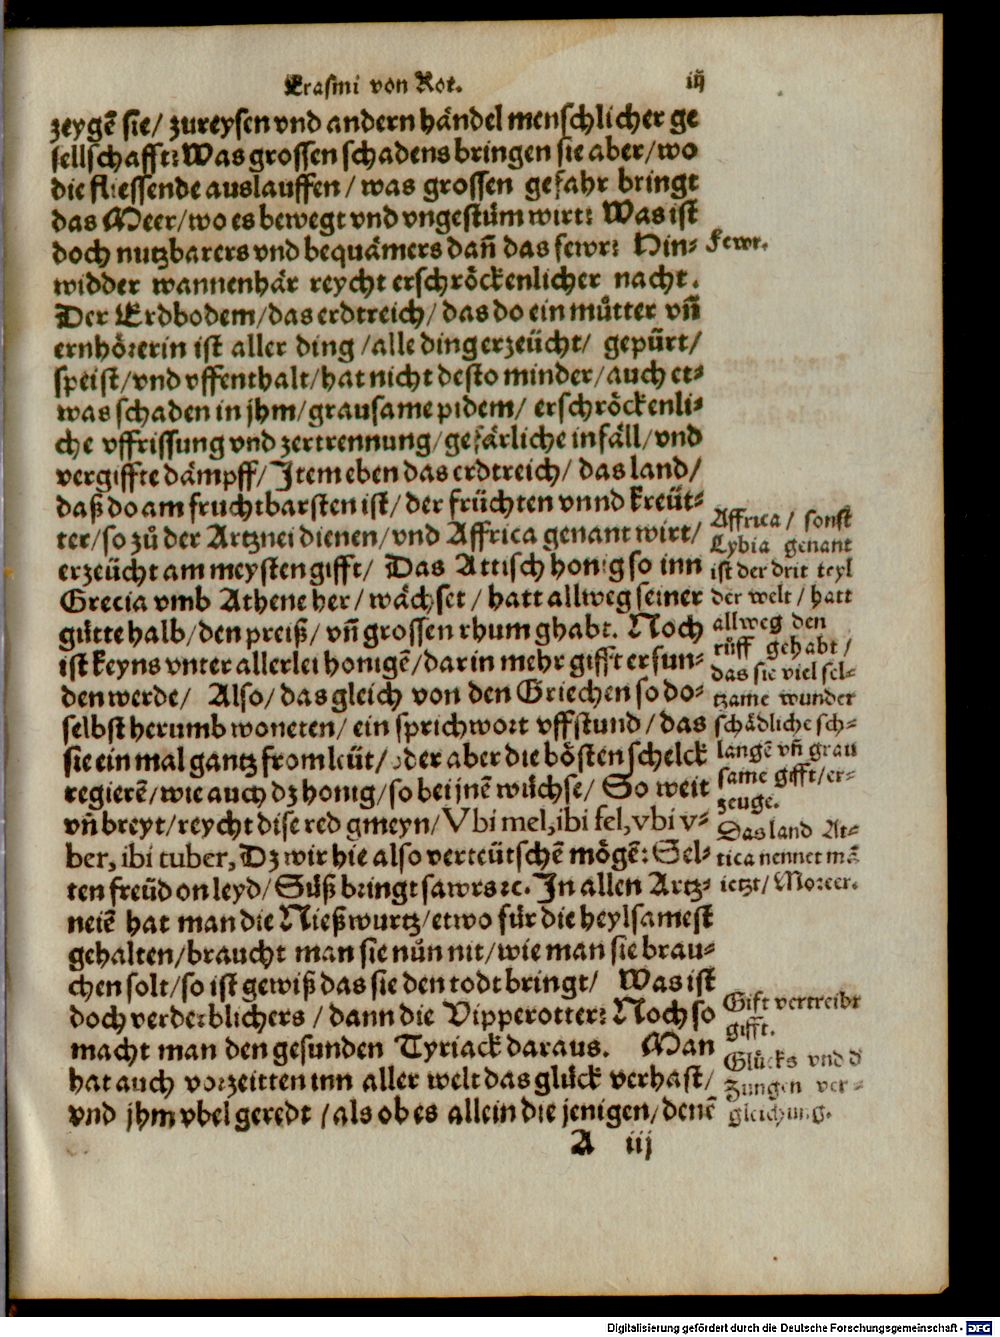 Erasmi von Rot. iij
zeygē sie/ zureysen vnd andern händel menschlicher ge
sellschafft: Was grossen schadens bringen sie aber/ wo
die fliessende auslauffen/ was grossen gefahr bringt
das Meer/ wo es bewegt vnd vngestüm wirt: Was ist
doch nutzbarers vnd bequämers dañ das fewr: Hin-
widder wannenhär reycht erschröckenlicher nacht.
Der Erdbodem/ das erdtreich/ das do ein můtter vñ
ernhörerin ist aller ding/ alle ding erzeücht/ gepürt/
speist/ vnd vffenthalt/ hat nicht desto minder/ auch et-
was schaden in jhm/ grausame pidem/ erschröckenli-
che vffrissung vnd zertrennung/ gefärliche infäll/ vnd
vergiffte dämpff/ Item eben das erdtreich/ das land/
daß do am fruchtbarsten ist/ der früchten vnnd kreüt-
ter/ so zů der Artznei dienen/ vnd Affrica genant wirt/
erzeücht am meysten gifft/ Das Attisch honig so inn
Grecia vmb Athene her/ wächset/ hatt allweg seiner
gütte halb/ den preiß/ vñ grossen rhum ghabt. Noch
ist keyns vnter allerlei honigē/ darin mehr gifft erfun-
den werde/ Also/ das gleich von den Griechen so do-
selbst herumb woneten/ ein sprichwort vffstund/ das
sie ein mal gantz from leüt/ oder aber die bösten schelck
regierē/ wie auch dz honig/ so bei jnē wüchse/ So weit
vñ breyt/ reycht dise red gmeyn/ Vbi mel, ibi fel, vbi v-
ber, ibi tuber, Dz wir hie also verteütschē mögē: Sel-
ten freüd on leyd/ Süß bringt sawrs ꝛc. In allen Artz-
neiē hat man die Nießwurtz/ etwo für die heylsamest
gehalten/ braucht man sie nůn nit/ wie man sie brau-
chen solt/ so ist gewiß das sie den todt bringt/ Was ist
doch verderblichers/ dann die Vipperotter: Noch so
macht man den gesunden Tyriack daraus. Man
hat auch vorzeitten inn aller welt das glück verhast/
vnd jhm vbel geredt/ als ob es allein die jenigen/ denē
A iij
Fewr.
Affrica/ sonst
Lybia genant
ist der drit teyl
der welt/ hatt
allweg den
rüff gehabt/
das sie viel sel-
tzame wunder
schädliche sch-
langē vñ grau
same gifft/ er-
zeuge.
Das land At-
tica nennet mā
ietzt/ Moreer.
Gift vertreibt
gifft.
Glücks vnd d
Zungen ver-
gleichung.
Digitalisierung gefördert durch die Deutsche Forschungsgemeinschaft - DFG